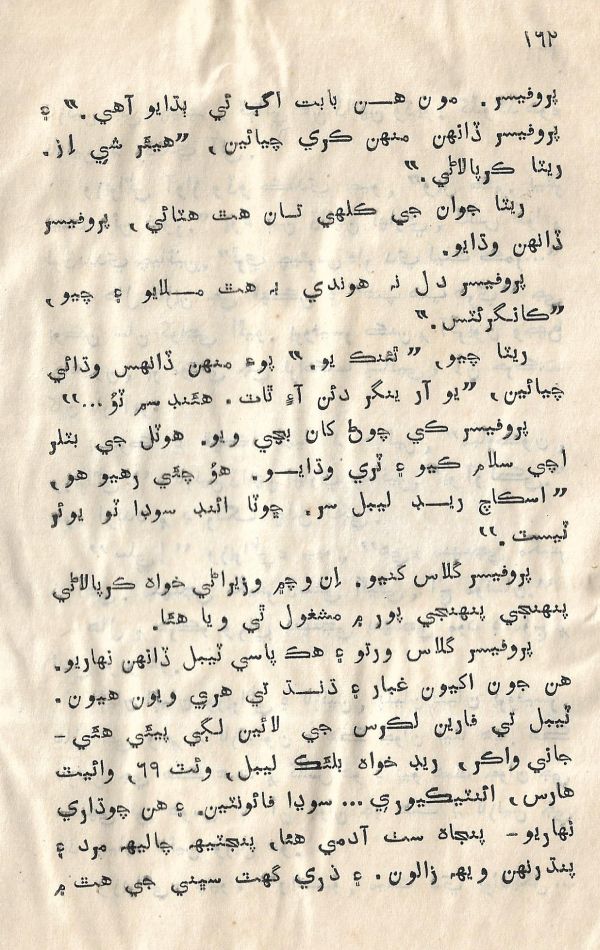 ۱۶۲
پروفيسر. مون هن بابت اڳ ئي ٻڌايو آهي.” ۽
پروفيسر ڏانهن منهن ڪري چيائين, ”هيئر شي اِز.
ريٽا ڪرپالاڻي.”
ريٽا جوان جي ڪلهي تان هٿ هٽائي, پروفيسر
ڏانهن وڌايو.
پروفيسر دل نہ هوندي بہ هٿ ملايو ۽ چيو,
”ڪانگرئٽس.”
ريٽا چيو, ”ٿئنڪ يو.” پوءِ منهن ڏانهس وڌائي
چيائين, ”يو آر ينگر دئن آءِ ٿاٽ. هئنڊ سم ٽوُ...“
پروفيسر کي چوڻ کان بچي ويو. هوٽل جي بٽلر
اچي سلام ڪيو ۽ ٽري وڌايو. هوُ چئي رهيو هو,
”اسڪاچ ريڊ ليبل سر. ڇوٽا ائنڊ سوڊا ٽو يوئر
ٽيسٽ.“
پروفيسر گلاس کنيو. اِن وچ ۾ وزيراڻي خواہ ڪرپالاڻي
پنهنجي پنهنجي پور ۾ مشغول ٿي ويا هئا.
پروفيسر گلاس ورتو ۽ هڪ پاسي ٽيبل ڏانهن نهاريو.
هن جون اکيون غبار ۽ ڌنڌ تي هري ويون هيون.
ٽيبل تي فارين لڪرس جي لائين لڳي پيئي هئي –
جاني واڪر, ريڊ خواہ بلئڪ ليبل, وئٽ ۶۹, وائيٽ
هارس, ائنٽيڪيوري... سوڊا فائونٽين. ۽ هن چوڌاري
نهاريو – پنجاہ سٺ آدمي هئا, پنجٽيهہ چاليهہ مرد ۽
پندرنهن ويهہ زالون. ۽ ذري گهٽ سڀني جي هٿ ۾